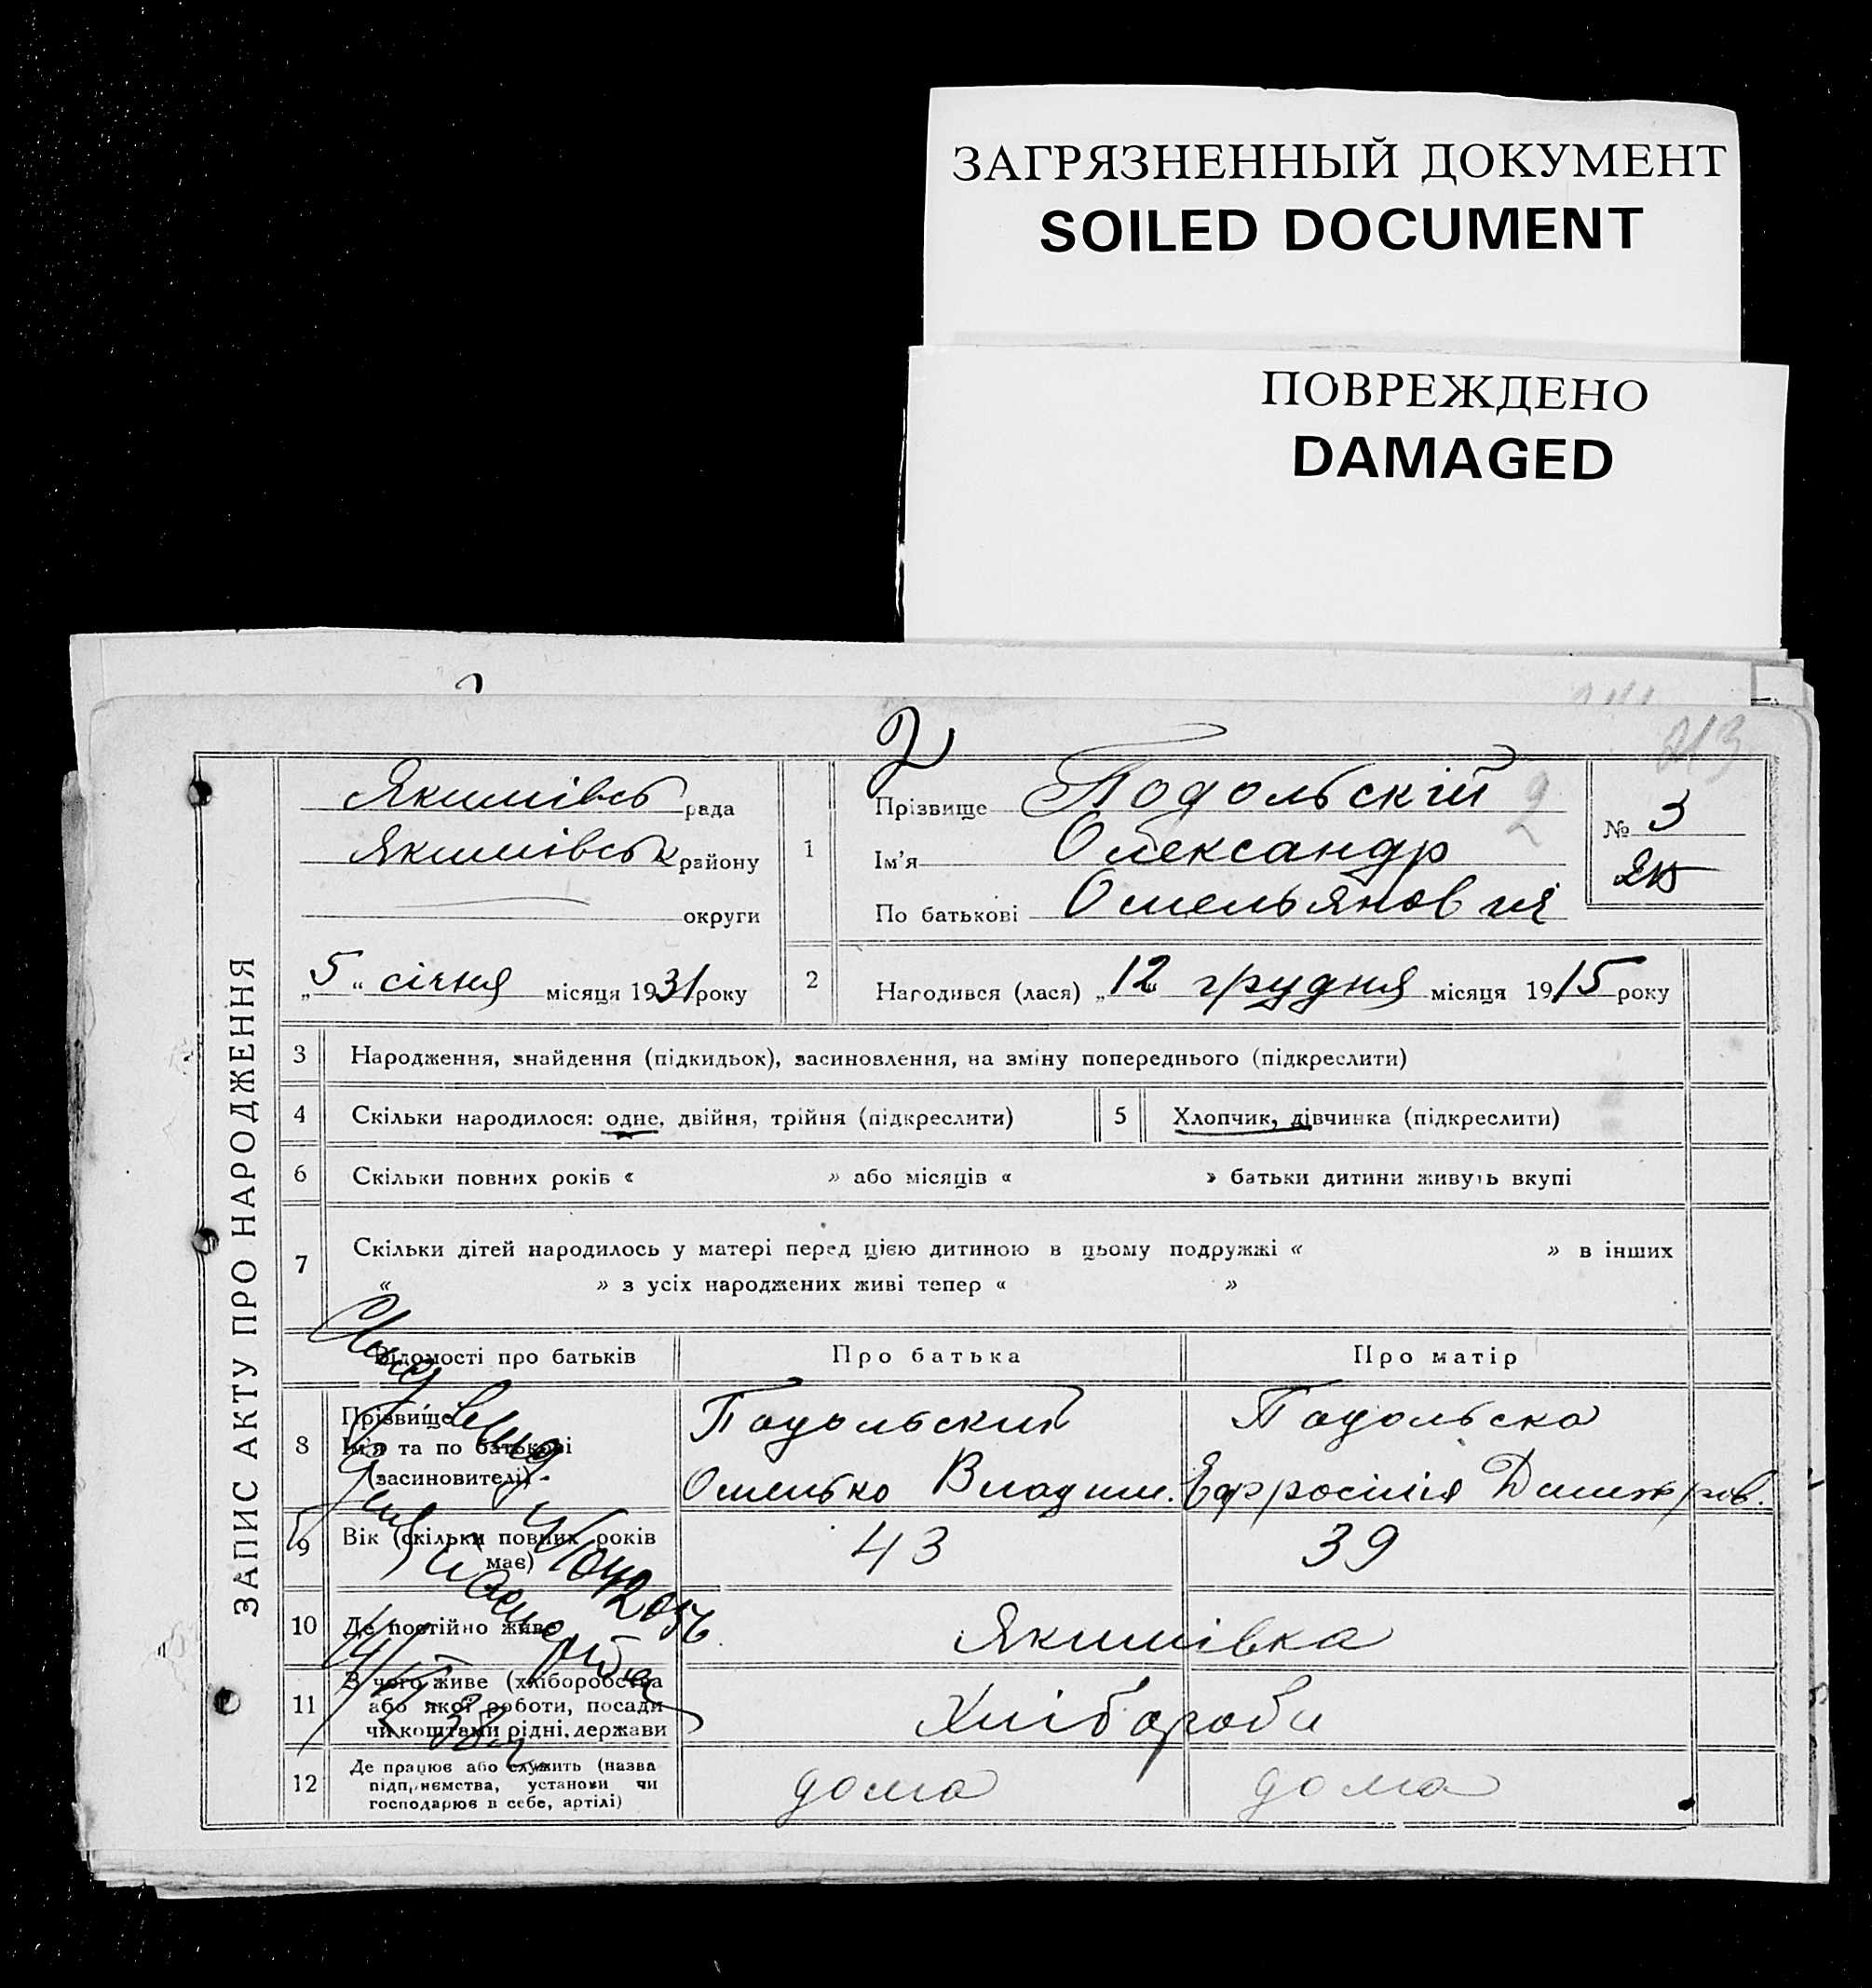 ЗАГРЯЗНЕННЫЙ ДОКУМЕНТ
SOILED DOCUMENT
ПОВРЕЖДЕНО
DAMAGED
213
2
ЗАПИС АКТУ ПРО НАРОДЖЕННЯ
Якимівсь рада
Якимівськ району
округи
„5“ січня місяця 1931 року
1
Прізвище Подольскій
2
Ім'я Олександр
По батькові Омельянович
№ 3
2 Народився (лася) „12 грудня місяця 1915 року
3 Народження, знайдення (підкидьок), засиновлення, на зміну попереднього (підкреслити)
4 Скільки народилося: одне, двійня, трійня (підкреслити) 5 Хлопчик, дівчинка (підкреслити)
6 Скільки повних років « » або місяців « » батьки дитини живуть вкупі
7 Скільки дітей народилось у матері перед цією дитиною в цьому подружжі « » в інших
« » з усіх народжених живі тепер « »
Відомості про батьків Про батька Про матір
8 Прізвище Подольский Подольска
Ім'я та по батькові
(засиновителі) Омелько Владим. Ефросинія Дмитров.
9 Вік (скільки повних років 43 39
має)
10 Де постійно живе Якимівка
11 З чого живе (хліборобства
або якої роботи, посади Хлібороби
чи коштами рідні, держави
12 Де працює або служить (назва
підприємства, установи чи дома дома
господарює в себе, артілі)